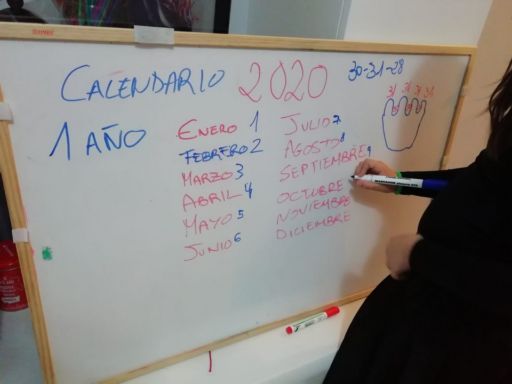 CALENDARIO 2020
30-31-28
31 31 31 31
1 AÑO
ENERO 1
FEBRERO 2
MARZO 3
ABRIL 4
MAYO 5
JUNIO 6
JULIO 7
AGOSTO 8
SEPTIEMBRE 9
OCTUBRE
NOVIEMBRE
DICIEMBRE